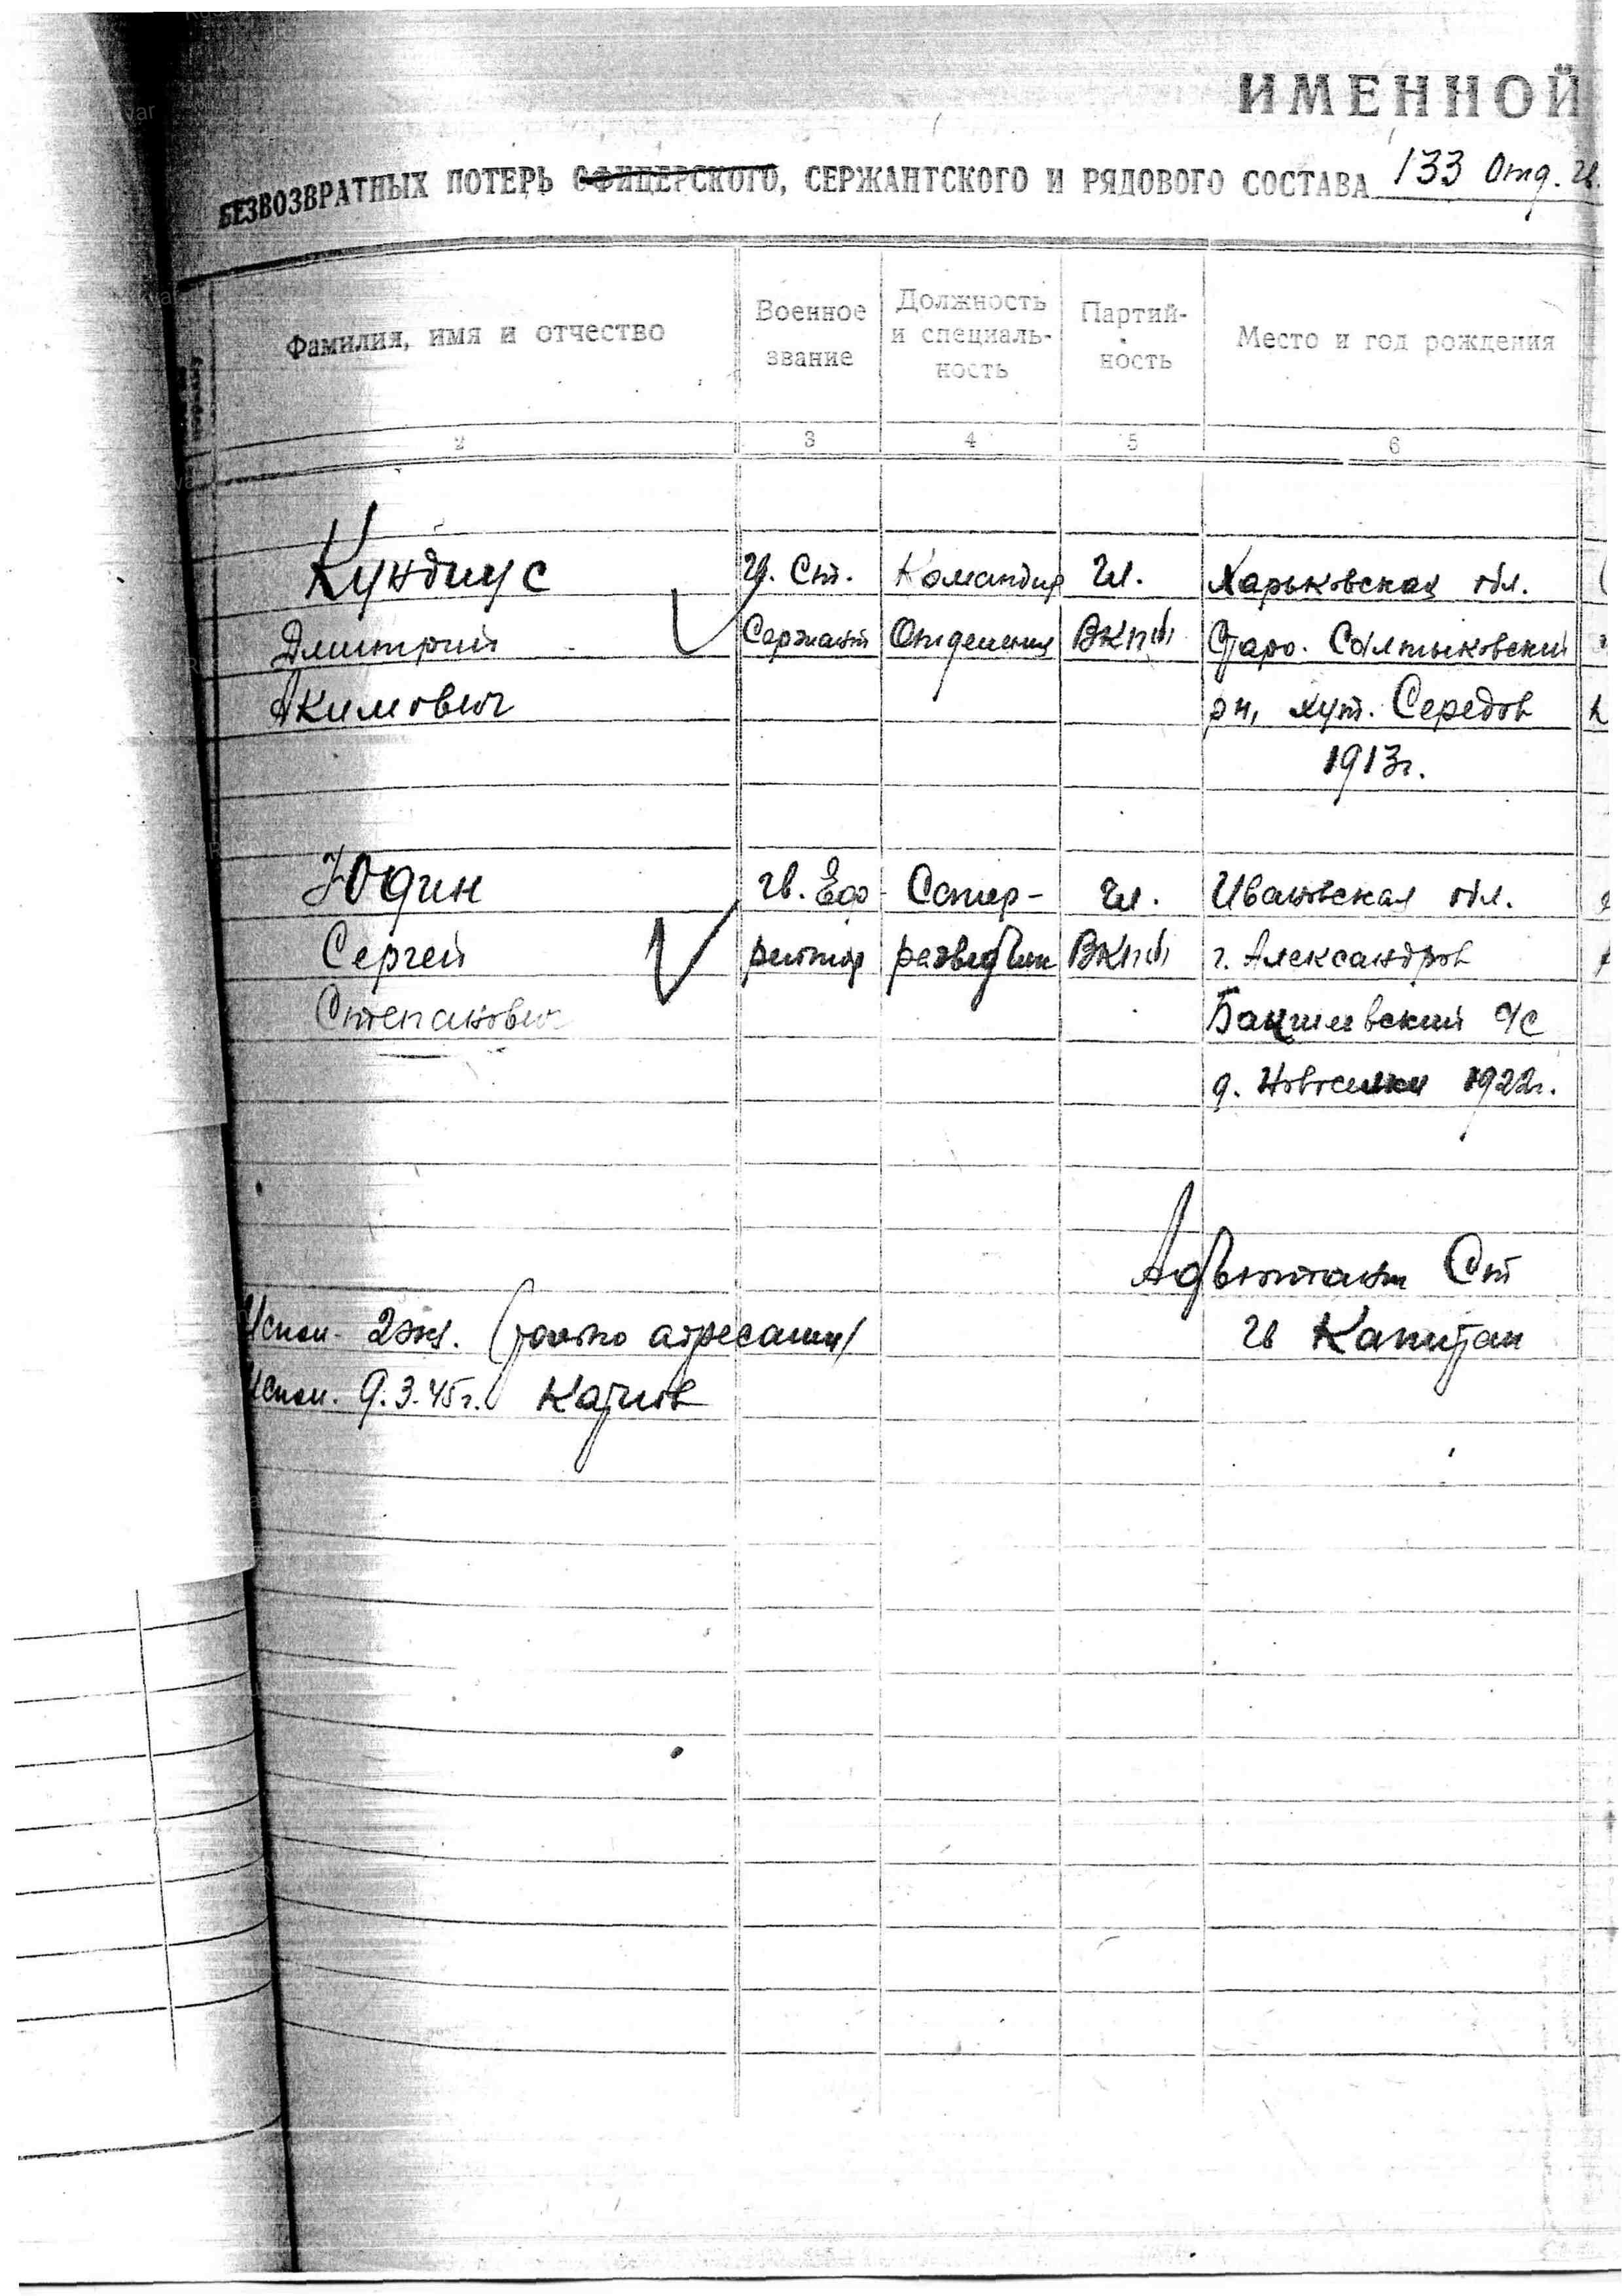 ИМЕННОЙ
БЕЗВОЗВРАТНЫХ ПОТЕРЬ ОФИЦЕРСКОГО, СЕРЖАНТСКОГО И РЯДОВОГО СОСТАВА 133 Отд. гв.
Фамилия, имя и отчество
Военное звание
Должность и специаль-ность
Партий-ность
Место и год рождения
2 3 4 5 6
Кундиус гв. Ст. Командир Чл. Харьковская обл.
Дмитрий Сержант Отделения ВКП(б) Старо. Салтыковский
Акимович рн, хут. Середов
1913г.
Юдин гв. Еф- Сапер- Чл. Ивановская обл.
Сергей рейтор разведчик ВКП(б) г. Александров
Степанович с/с
д. Новоселки 1922г.
Адъютант Ст
Испол. 2 экз. (только адресатам) гв Капитан
Испол. 9.3.45г.